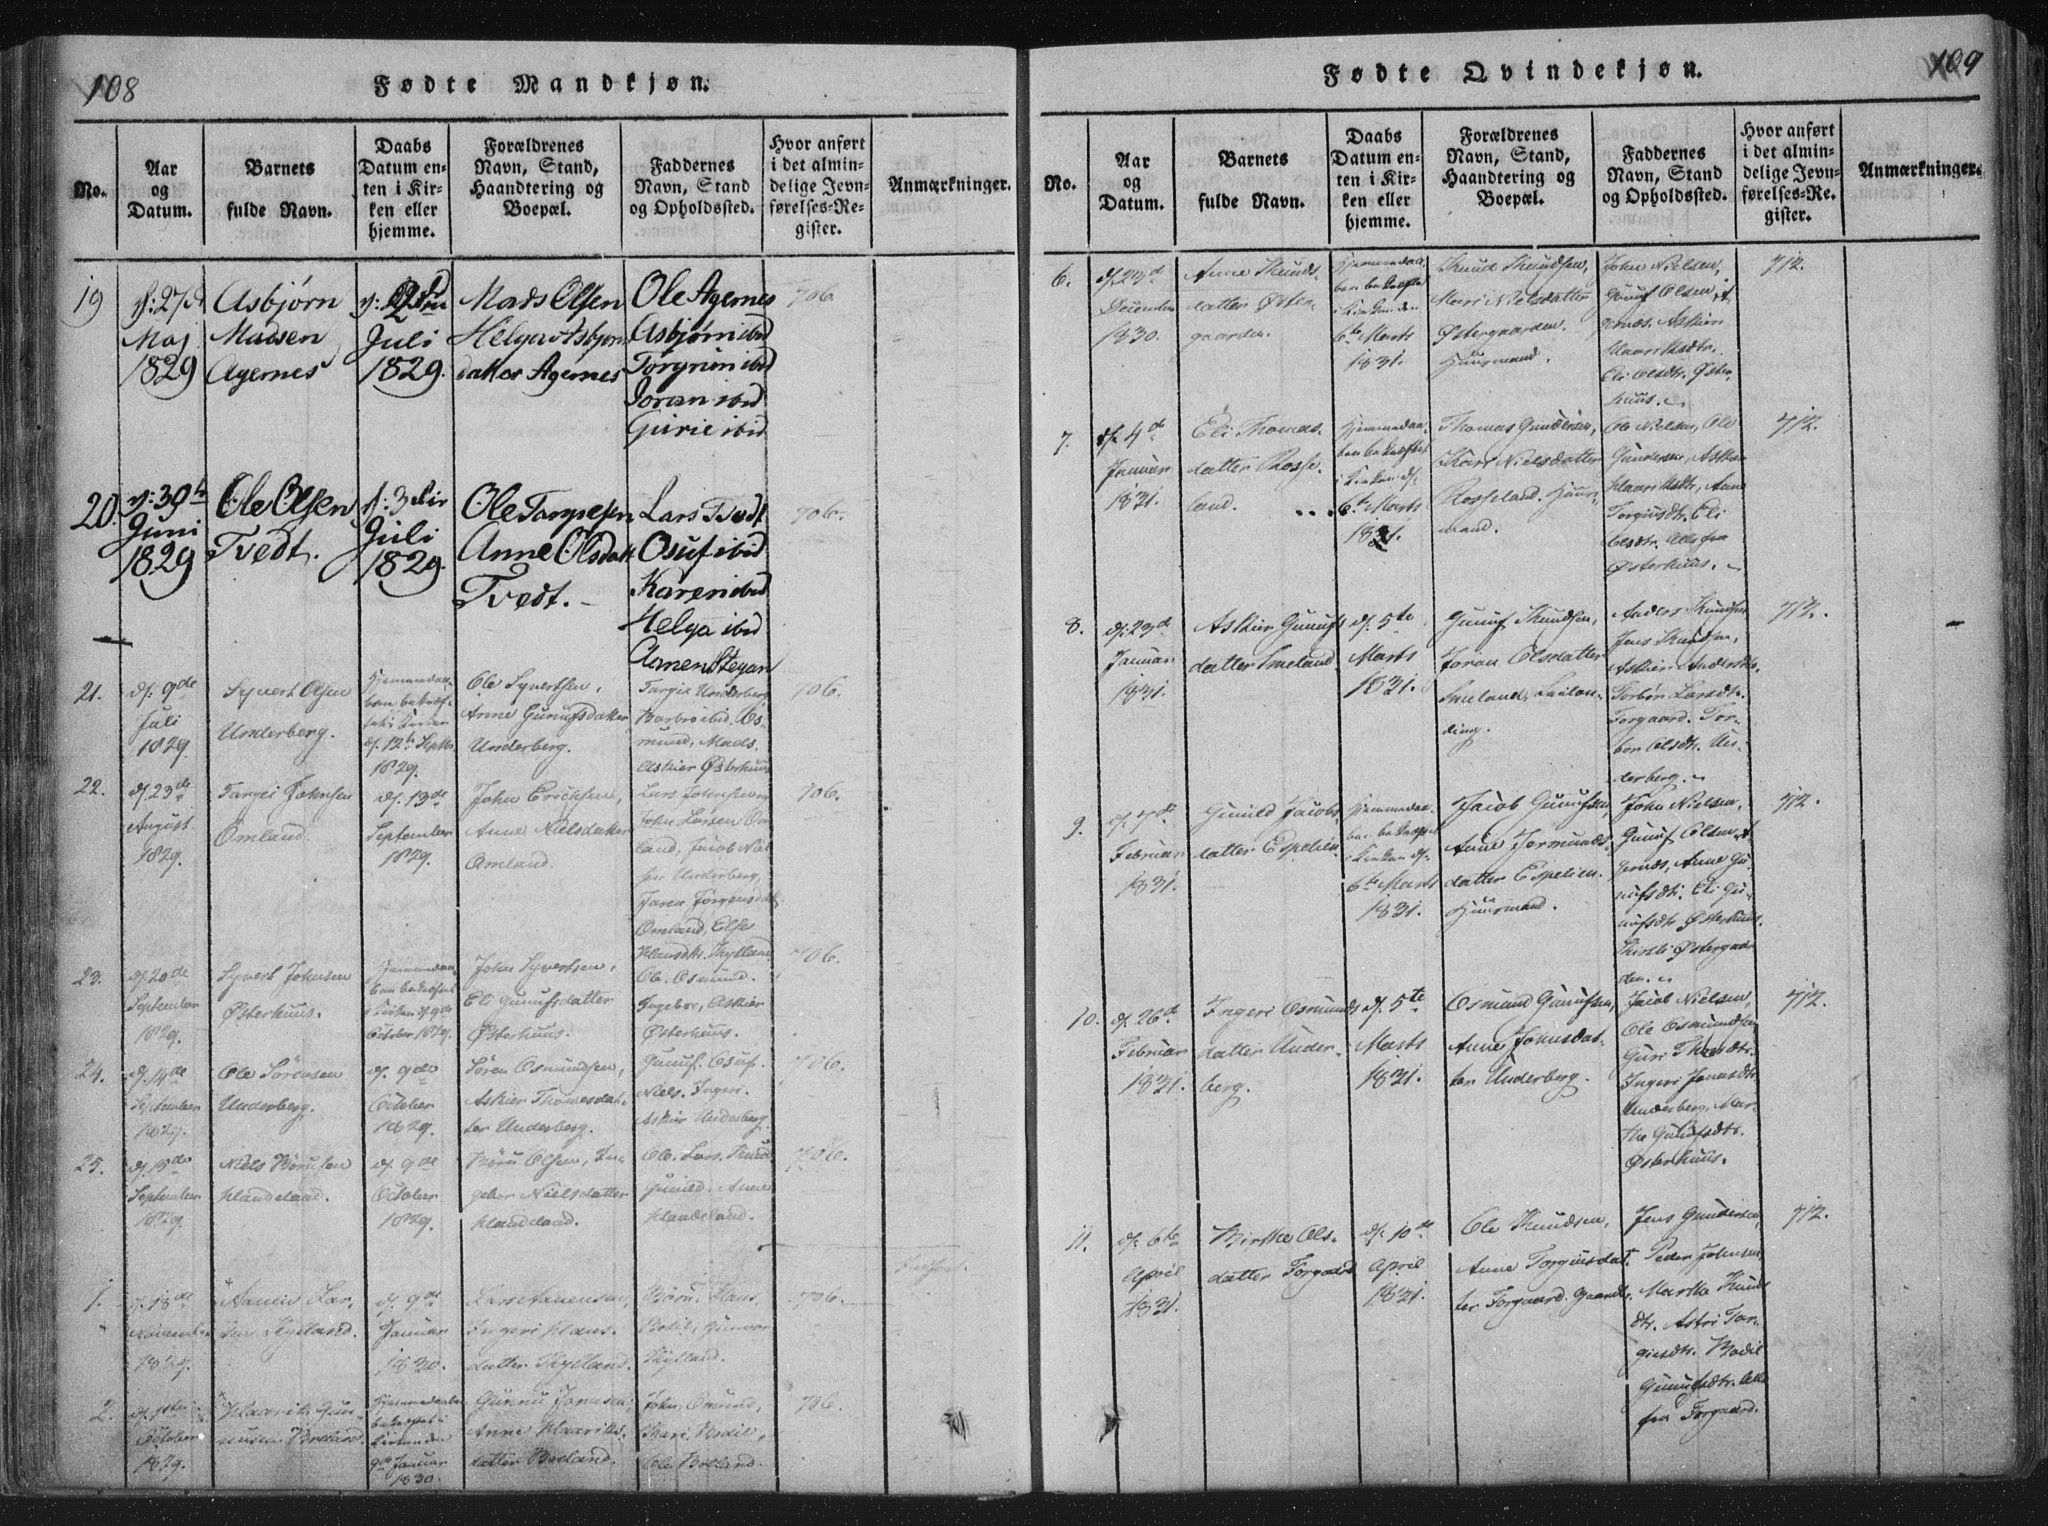 108
Fødte Mandkjøn.
No.
Aar
og
Datum.
Barnets
fulde Navn.
Daabs
Datum en-
ten i Kir-
ken eller
hjemme.
Forældrenes
Navn, Stand,
Haandtering og
Boepæl.
Faddernes
Navn, Stand
og Opholdssted.
Hvor anført
i det almin-
delige Jevn-
førelses-Re-
gister.
Anmærkninger.
19
Maj
1829
Asbjørn
Madsen
Agernes
Juli
1829.
Mads Olsen
Helge Asbjørn
datter Agernes
Ole Agernes
Asbjørn ibid
Torgrim ibid
Joran ibid
Gurie ibid
706.
20.
d: 30te
Juni
1829
Ole Olsen
Tvedt.
Juli
1829.
Ole Targiesen
Anne Olsdatt
Tvedt.
Lars Tvedt
Osuf ibid
Karen ibid
Helga ibid
706.
21.
d. 9de
Juli
1829
Syvert Olsen
Underberg.
Hjemmedaa-
ben bekræf-
tet i Kirken
d. 12te Septbr
1829.
Ole Syvertsen,
Anne Gunufsdatter
Underberg.
Targie Underberg
Barbro ibid. Os-
mund, Mads,
Askier Østerhuus
706.
22.
d. 23de
August
1829.
Targei Johnsen
Omland.
d. 13de
September
1829.
John Erichsen,
Anne Nielsdatter
Omland.
Lars Johnsen og
John Larsen Om
land. Jacob Niel
sen Underberg,
Taren Jørgensdatt
Omland, Else
Hansdtr. Kylland
706.
23.
d. 20de
September
1829.
Syvert Johnsen
Østerhuus.
Hjemmedaa-
ben bekræftet
i Kirken d. 9de
October 1829.
John Syvertsen,
Eli Gunufsdatter
Østerhuus.
Ole. Osmund.
Ingebor, Askier
Østerhuus.
706.
24.
d. 14de
September
1829.
Ole Sörensen
Underberg.
d. 9de
October
1829.
Sören Osmundsen,
Askier Thomesdat-
ter Underberg.
Gunuf. Osuf.
Niels. Ingeri.
Askier Underberg
706.
25.
d. 15de
September
1829.
Niels Börusen
Haadeland.
d. 9de
October
1829.
Böru Olsen, In-
gebor Nielsdatter
Haadeland.
Ole. Lars. Knud
Gunild. Anne
Haadeland.
706.
1.
d. 18de
Novembr
1829.
Aanen Lar-
sen Kylland.
d. 9de
Januar
1830.
Lars Aanensen,
Ingeri Hans-
datter Kylland.
Böru. Hans,
Bodil, Gunvor
Kylland.
706.
2.
d. 1ste
October
1829.
Haarik Gun-
nusen Breland
Hjemmedaaben
bekræftet i
Kirken den
9de Januar
1830.
Gunnu Jonsen,
Anne Haariks-
datter Breland.
John, Omund,
Kari, Bodil,
Ole Breland.
706.
109
Fødte Qvindekjøn.
No.
Aar
og
Datum.
Barnets
fulde Navn.
Daabs
Datum en-
ten i Kir-
ken eller
hjemme.
Forældrenes
Navn, Stand,
Haandtering og
Boepæl.
Faddernes
Navn, Stand
og Opholdssted.
Hvor anført
i det almin-
delige Jevn-
førelses-Re-
gister.
Anmærkninger.
6.
d. 23d
December
1830.
Anne Knuds-
datter Øster-
gaarden.
Hjemmedaa-
ben bekræftet
i Kirken den
6te Marts
1831.
Knud Knudsen,
Mari Nielsdatter
Østergaarden.
Huusmand.
John Nielsen,
Gunuf Olsen, A-
gernæs. Askier
Haariksdtr.
Eli Olsdtr. Øster-
huus.
712.
7.
d. 4d
Januar
1831.
Eli Thomas-
datter Rosse-
land.
Hjemmedaa-
ben bekræftet
i Kirken d.
6te Marts
1831.
Thomas Gundersen,
Kari Nielsdatter
Rosseland. Huus-
mand.
Ole Nielsen, Ole
Gundersen, Askier
Haariksdtr, Anne
Torgiusdtr. Eli
Olesdtr. Alle fra
Østerhuus.
712.
8.
d. 23d
Januar
1831.
Askier Gunufs
datter Smeland.
d. 5te
Marts
1831.
Gunuf Knudsen,
Joran Olsdatter
Smeland, Leilæn-
ding.
Anders Knudsen
Jens Knudsen,
Askier Andersdtr.
Torbör Larsdtr.
Torgaard. Tor-
bor Olsdtr. Un-
derberg.
712.
9.
d. 7de
Februar
1831.
Gunild Jacobs
datter Espelien
Hjemmedaa-
ben bekræftet
i Kirken d.
6te Marts
1831.
Jacob Gunufsen,
Anne Jormunds-
datter Espelien.
Huusmand.
John Nielsen,
Gunuf Olsen, A-
gernæs, Anne Gu-
nufsdtr. Eli Gu-
nufsdtr. Østerhuus.
Kirsti Østergaar-
den.
712.
10.
d. 26d
Februar
1831.
Ingeri Osmunds
datter Under-
berg.
d. 5te
Marts
1831.
Osmund Gunufsen,
Anne Jonusdat-
ter Underberg.
Jacob Nielsen,
Ole Osmundsen
Guri Thoresdtr.
Ingeri Jonasdtr.
Underberg, Mar-
the Gunufsdtr.
Østerhuus.
712.
11.
d. 6te
April
1831.
Birthe Ols-
datter Torgaard
d. 10de
April
1831.
Ole Knudsen,
Anne Torgiusdat-
ter Torgaard. Gaardbr.
Jens Gundersen,
Peder Johnsen
Marthe Knuds
dtr. Astri Tor-
giusdtr. Bodil
Gunufsdtr. Alle
fra Torgaard.
712.